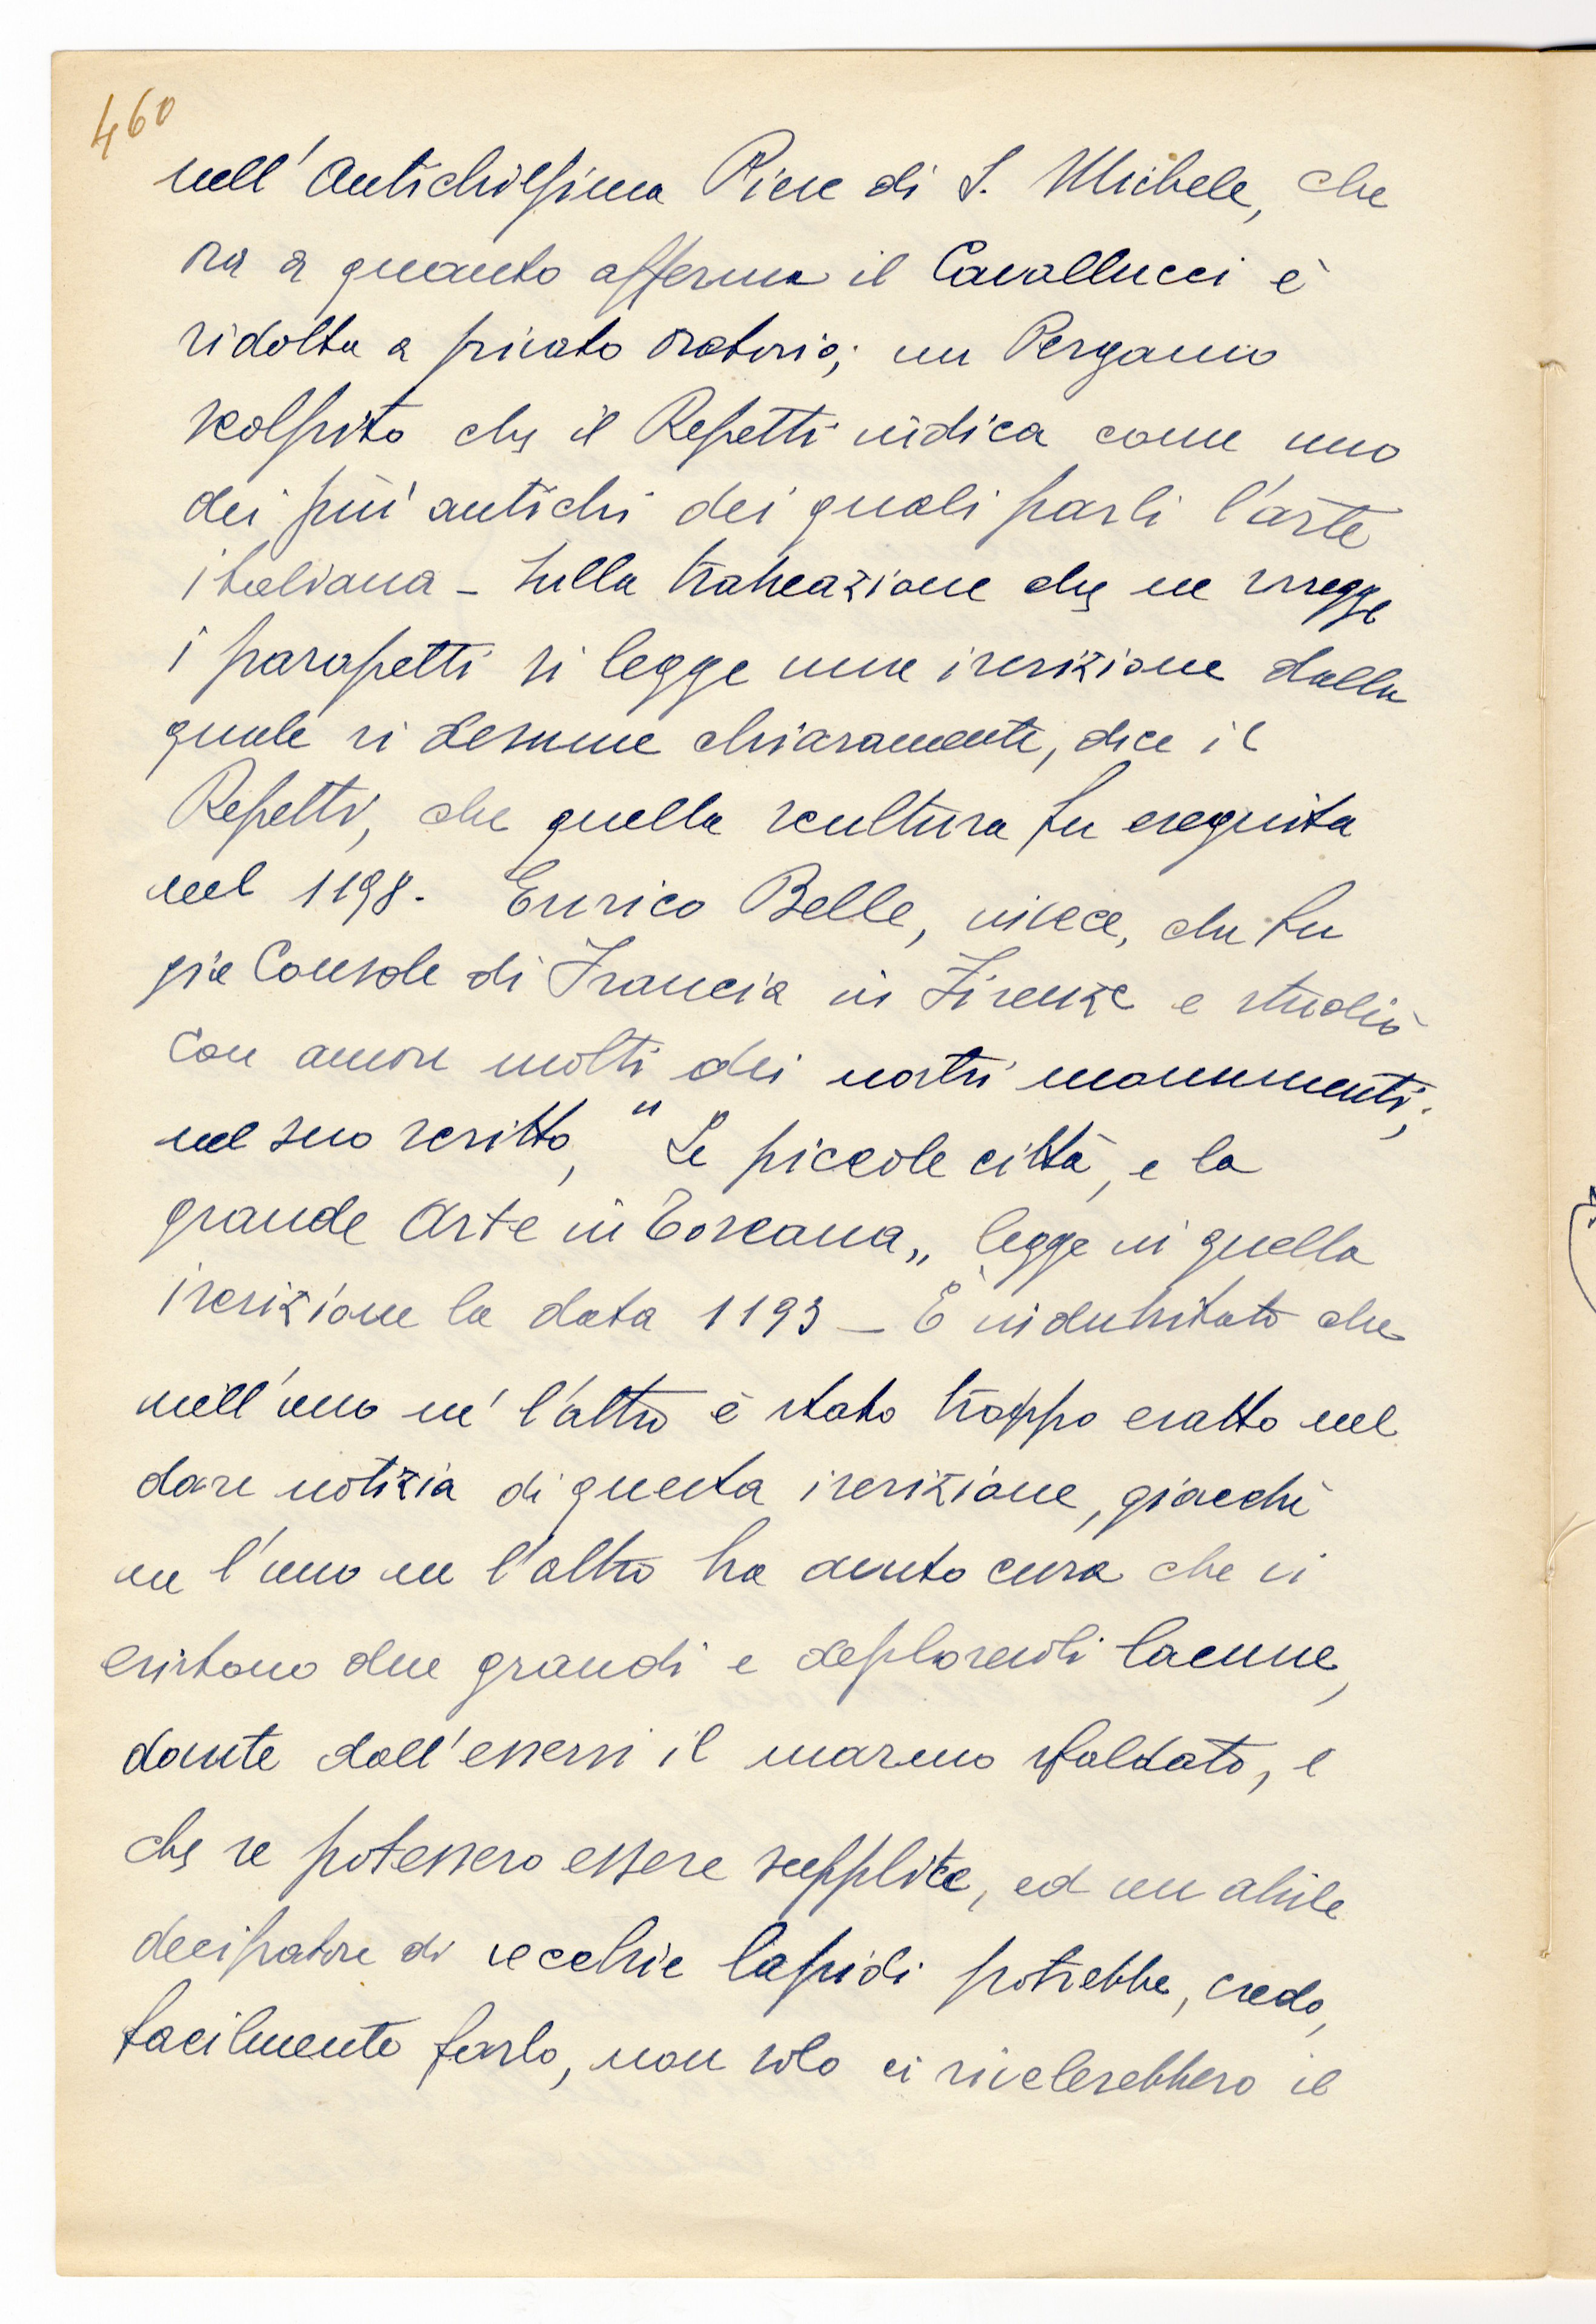 460
nell'Antichissima Pieve di S. Michele, che
ora a quanto afferma il Cavallucci è
ridotta a privato oratorio; un Pergamo
scolpito che il Repetti indica come uno
dei più antichi dei quali parli l'arte
italiana - Sulla trabeazione che ne sorregge
i parapetti si legge una iscrizione dalla
quale si desume chiaramente, dice il
Repetti, che quella scultura fu eseguita
nel 1198. Enrico Belle, invece, che fu
già Console di Francia in Firenze e studiò
con amore molti dei nostri monumenti;
nel suo scritto, "Le piccole città, e la
grande Arte in Toscana„ legge in quella
iscrizione la data 1193 - È indubitato che
nell'uno nè l'altro è stato troppo esatto nel
dare notizia di questa iscrizione, giacchè
ne l'uno ne l'altro ha avuto cura che vi
esistono due grandi e deplorevoli lacune,
dovute dall'essersi il marmo sfaldato, e
che se potessero essere supplite, ed un abile
decifratore di vecchie lapidi potrebbe, credo,
facilmente farlo, non solo ci rivelerebbero il